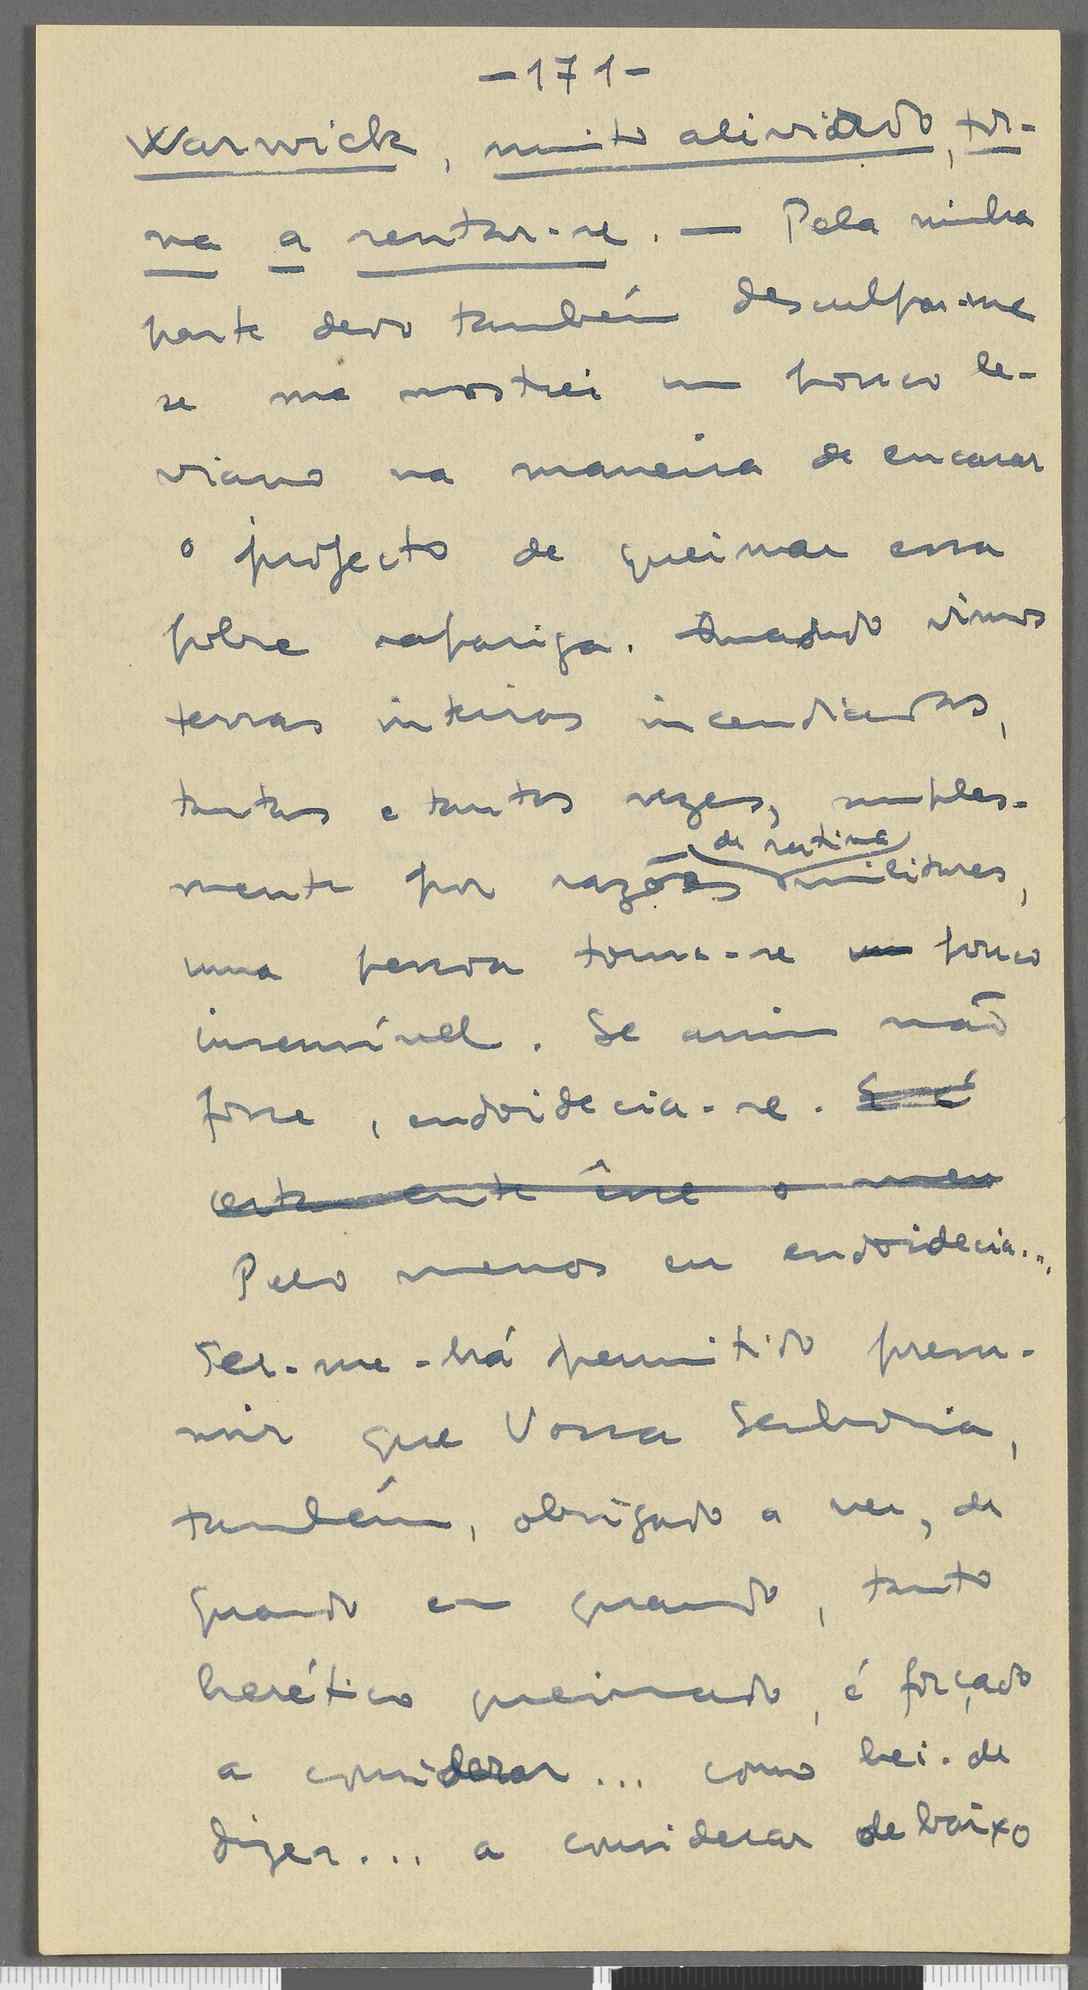 -171-
Warwick, muito aliviado, tor-
na a sentar-se. — Pela minha
parte devo também desculpar-me
se me mostrei um pouco le-
viano na maneira de encarar
o projecto de queimar essa
pobre rapariga. Quando vimos
terras inteiras incendiadas,
tantas e tantas vezes, simples-
de rotina
mente por razões militares,
uma pessoa torna-se um pouco
insensível. Se assim não
fosse, endoidecia-se. E é
certamente êsse o meu
Pelo menos eu endoidecia...
Ser-me-há permitido presu-
mir que Vossa Senhoria,
também, obrigado a ver, de
quando em quando, tanto
herético queimado, é forçado
a considerar... como hei-de
dizer... a considerar debaixo